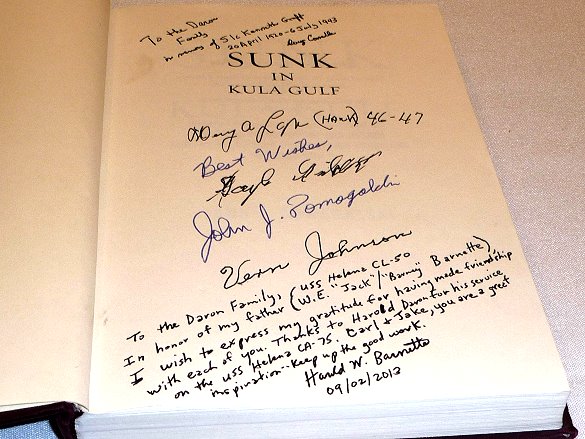 To the Daron
Family
in memory of S1c Kenneth Graff
20 April 1920-6 July 1943
SUNK
IN
KULA GULF
A (HANK) 46-47
Best Wishes,
John J.
Vern Johnson
To the Daron Family, USS Helena CL-50
In honor of my father (W.E. "Jack"/"Barney" Barnette),
I wish to express my gratitude for having made friendship
with each of you. Thanks to Harold Daron for his service
on the USS Helena CA-75. Carl & Jake, you are a great
inspiration--keep up the good work.
Harold W. Barnette
09/02/2012